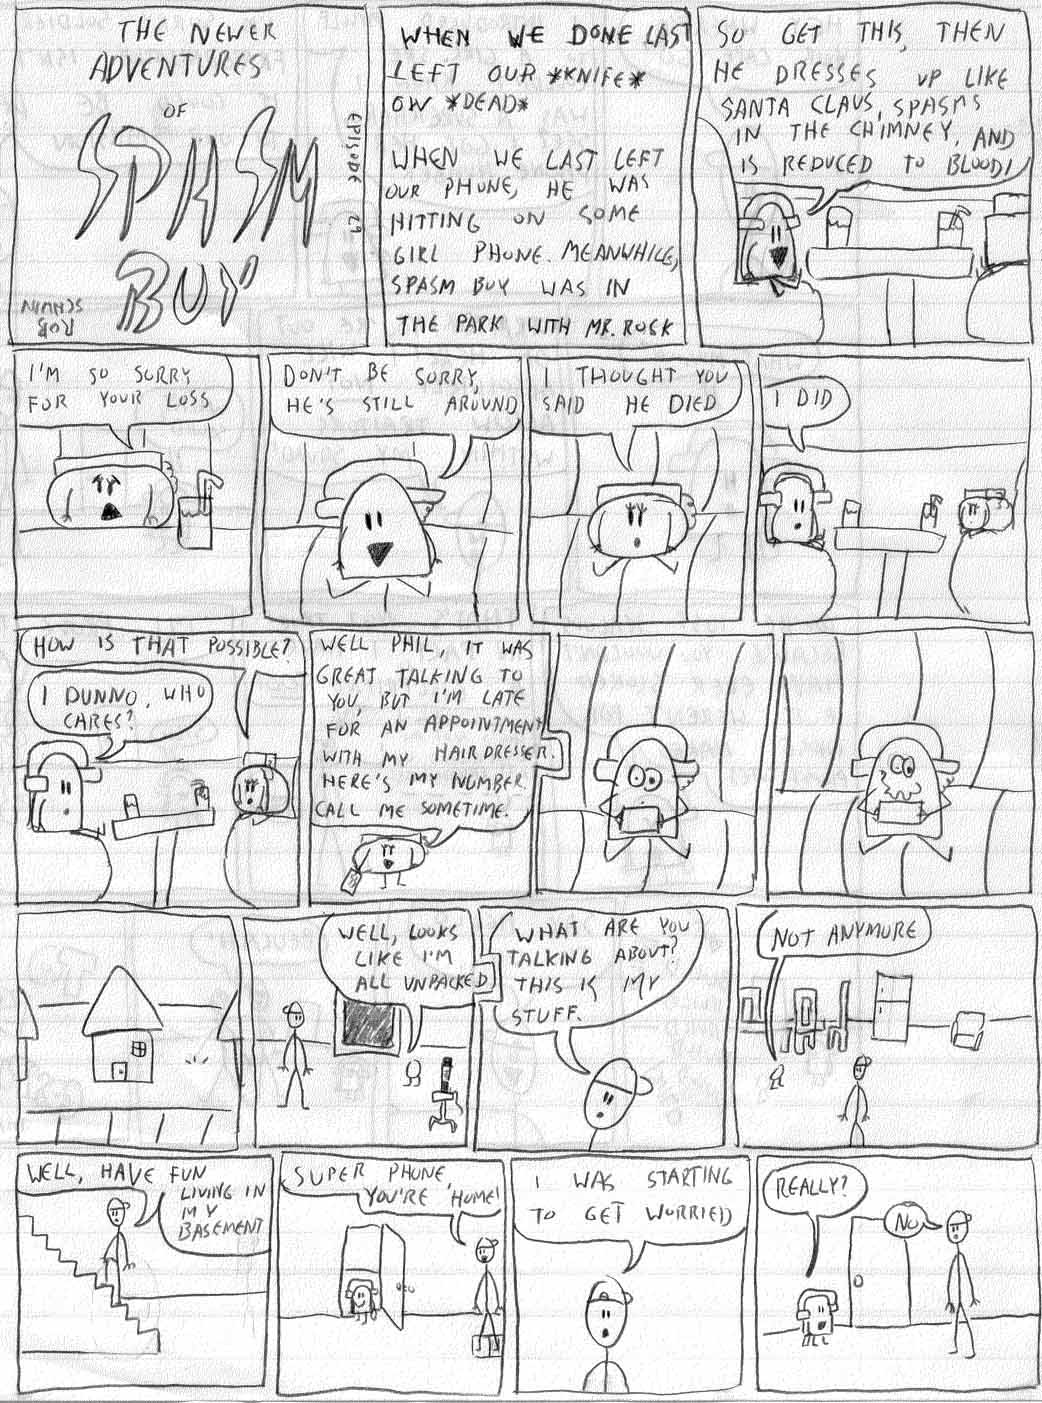 THE NEWER
ADVENTURES
OF
SPASM
BUY
EPISODE 29
ROB
SCHWIN
WHEN WE DONE LAST
LEFT OUR *KNIFE*
OW *DEAD*
WHEN WE LAST LEFT
OUR PHONE, HE WAS
HITTING ON SOME
GIRL PHONE. MEANWHILE,
SPASM BUY WAS IN
THE PARK WITH MR. ROCK
SO GET THIS, THEN
HE DRESSES UP LIKE
SANTA CLAUS, SPASMS
IN THE CHIMNEY, AND
IS REDUCED TO BLOOD!
I'M SO SORRY
FOR YOUR LOSS
DON'T BE SORRY,
HE'S STILL AROUND
I THOUGHT YOU
SAID HE DIED
I DID
HOW IS THAT POSSIBLE?
I DUNNO, WHO
CARES?
WELL PHIL, IT WAS
GREAT TALKING TO
YOU, BUT I'M LATE
FOR AN APPOINTMENT
WITH MY HAIRDRESSER.
HERE'S MY NUMBER.
CALL ME SOMETIME.
WELL, LOOKS
LIKE I'M
ALL UNPACKED
WHAT ARE YOU
TALKING ABOUT?
THIS IS MY
STUFF.
NOT ANYMORE
WELL, HAVE FUN
LIVING IN
MY
BASEMENT
SUPER PHONE,
YOU'RE HOME!
I WAS STARTING
TO GET WORRIED
REALLY?
NO